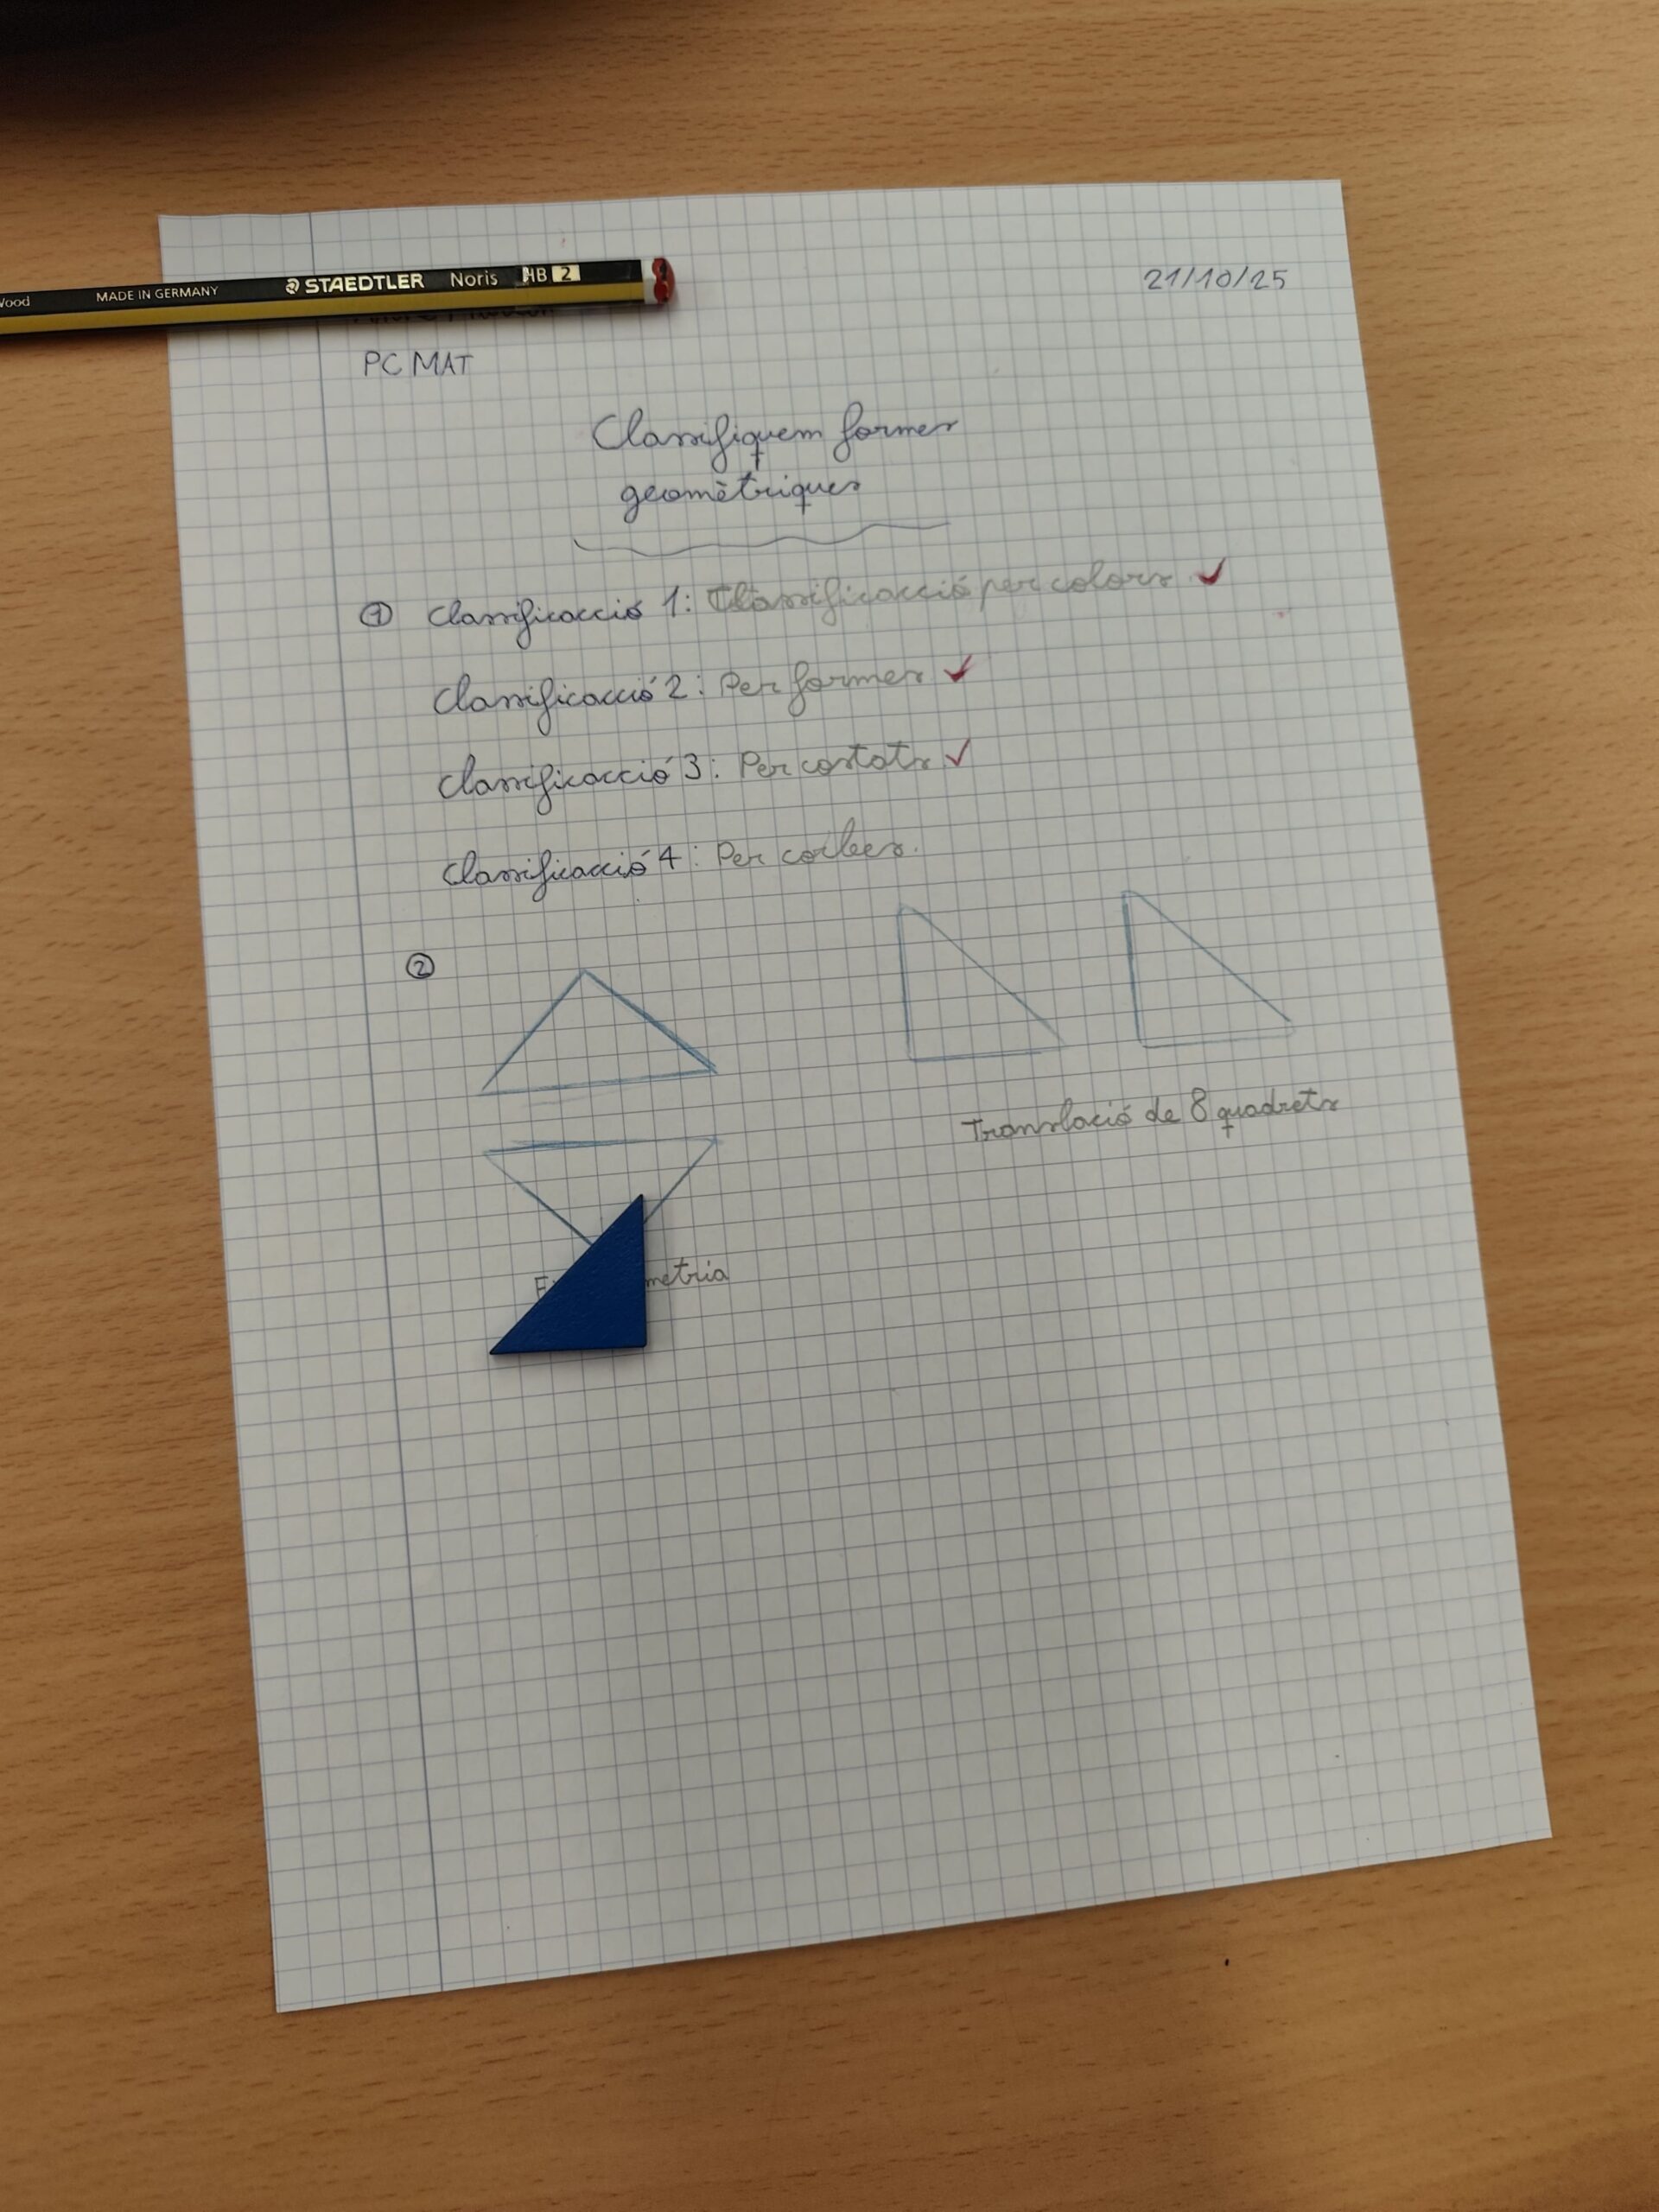 Wood MADE IN GERMANY STAEDTLER Noris HB 2
21/10/25
PC MAT
Classifiquem formes
geomètriques
1 Classificacció 1: Classificacció per colors
Classificacció 2: Per formes
Classificacció 3: Per costats
Classificacció 4: Per corbes.
2
Translació de 8 quadrets
metria